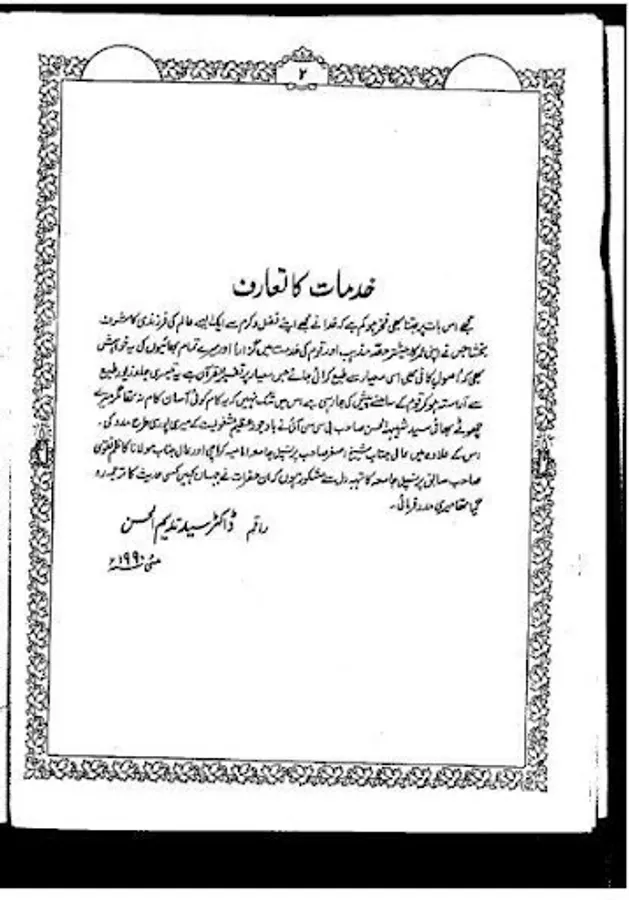 ۲
خدمات کا تعارف
مجھے اس بات پر جتنا بھی فخر ہو کم ہے کہ خدا نے مجھے اپنے فضل و کرم سے ایک ایسے عالم کی فرزندی کا مشرف
بخشا جس نے اپنی عمر کا بیشتر حصہ مذہب اور قوم کی خدمت میں گزارا اور میرے تمام بھائیوں کی یہ خواہش
تھی کہ اصول کافی بھی اسی معیار سے طبع کرائی جائے جس معیار پر تفسیر القرآن ہے یہ تیسری جلد زیور طبع
سے آراستہ ہو کر قوم کے سامنے پیش کی جارہی ہے اس میں شک نہیں کہ یہ کام کوئی آسان کام نہ تھا مگر میرے
چھوٹے بھائی سید شبیہ الحسن صاحب پی سی ایس آئی نے باوجود عظیم مشغولیت کے میری پوری طرح مدد کی۔
اس کے علاوہ میں عالی جناب شیخ اصغر صاحب پرنسپل جامعہ امامیہ کراچی اور عالی جناب مولانا کاظم نقوی
صاحب سابق پرنسپل جامعہ کا تہہ دل سے مشکور ہوں کہ ان حضرات نے جہاں کہیں کسی حدیث کا ترجمہ رہ
گیا تھا میری مدد فرمائی۔
راقم ڈاکٹر سید ندیم الحسن
مئی ۱۹۹۰ء